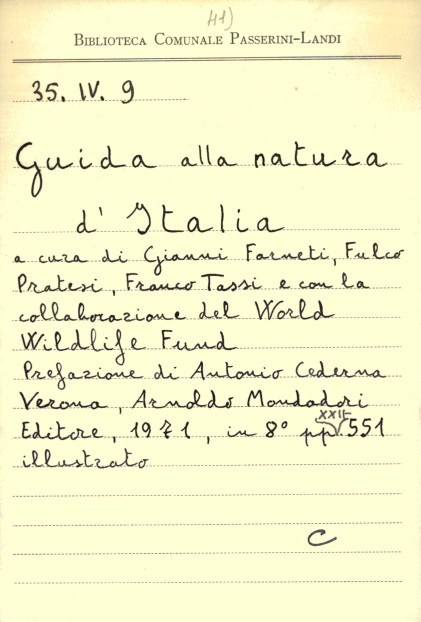 41)
BIBLIOTECA COMUNALE PASSERINI-LANDI
35. IV. 9
Guida alla natura
d' Italia
a cura di Gianni Farneti, Fulco
Pratesi, Franco Tassi e con la
collaborazione del World
Wildlife Fund
Prefazione di Antonio Cederna
Verona, Arnoldo Mondadori
Editore, 1971, in 8° pp XXII 551
illustrato
C